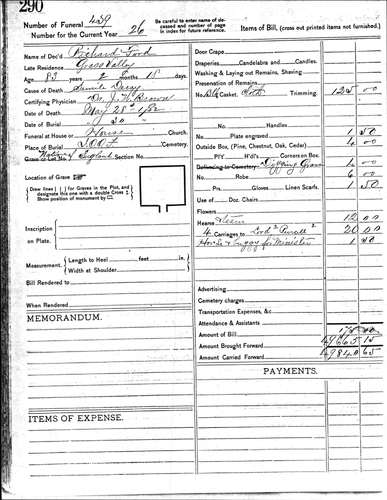 290
Number of Funeral 439
Number for the Current Year 26
Be careful to enter name of deceased and number of page in index for future reference.
Items of Bill, (cross out printed items not furnished.)
Name of Dec'd Richard Ford
Late Residence Grass Valley
Age 83 years 2 Days 18
Cause of Death Senile Decay
Certifying Physician Dr. J. H. Browne
Date of Death May 28th 1/02
Date of Burial " 30 "
Funeral at House or House Church.
Place of Burial I.O.O.F. Cemetery.
Native of England Section No.
Location of Grave
Draw lines for Graves in the Plot, and designate this one with a double Cross
Show position of monument by
Inscription on Plate.
Measurement. Length to Heel feet in.
Width at Shoulder
Bill Rendered to
When Rendered
MEMORANDUM.
ITEMS OF EXPENSE.
Door Crape
Draperies, Candelabra and Candles.
Washing & Laying out Remains, Shaving
Preservation of Remains
No. Blk Casket, Cloth Trimming. 125 00
Handles
Plate engraved 1 50
Outside Box, (Pine, Chestnut, Oak, Cedar) 4 00
P'lY. H'd'l's Corners on Box.
Delivering to Cemetery Digging Grave
No. Robe 6 00
Prs. Gloves Linen Scarfs. 1 50
Use of Doz. Chairs
Flowers
Hearse Team 12 00
4 Carriages to 20 00
Horse & Buggy for Minister
Advertising
Cemetery charges
Transportation Expenses, &c.
Attendance & Assistants
Amount of Bill
Amount Brought Forward 49665 15
Amount Carried Forward 49840 65
PAYMENTS.